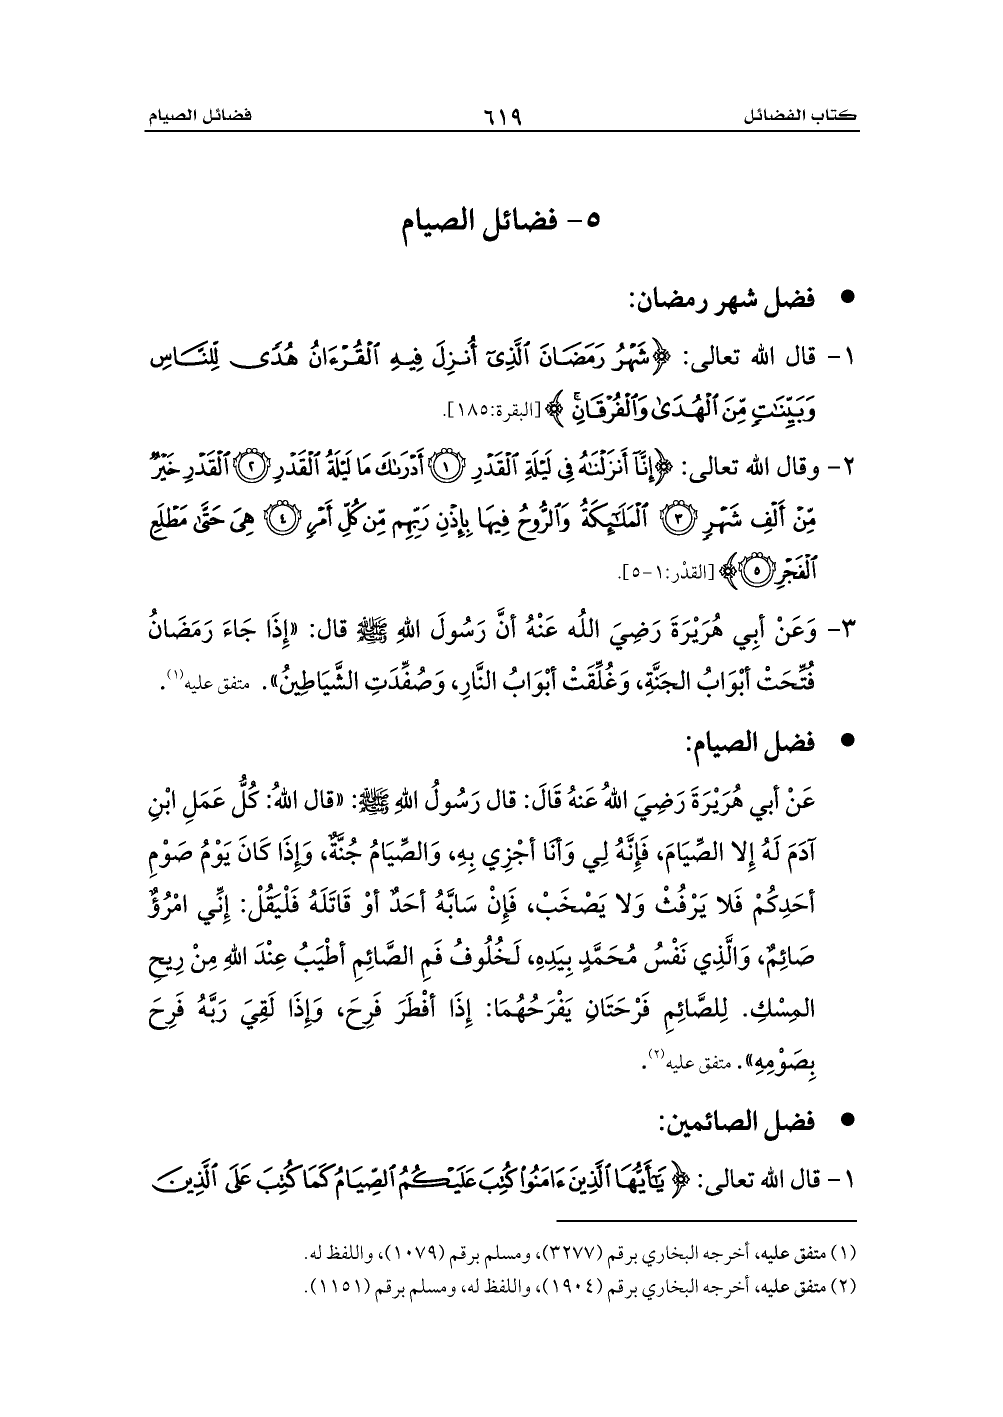 كتاب الفضائل ٦١٩ فضائل الصيام
٥- فضائل الصيام
● فضل شهر رمضان:
١- قال الله تعالى: ﴿شَهْرُ رَمَضَانَ ٱلَّذِىٓ أُنزِلَ فِيهِ ٱلْقُرْءَانُ هُدًى لِّلنَّاسِ
وَبَيِّنَٰتٍ مِّنَ ٱلْهُدَىٰ وَٱلْفُرْقَانِۚ﴾ [البقرة:١٨٥].
٢- وقال الله تعالى: ﴿إِنَّآ أَنزَلْنَٰهُ فِى لَيْلَةِ ٱلْقَدْرِ ١ أَدْرَىٰكَ مَا لَيْلَةُ ٱلْقَدْرِ ٢ ٱلْقَدْرِ خَيْرٌ
مِّنْ أَلْفِ شَهْرٍ ٣ ٱلْمَلَٰٓئِكَةُ وَٱلرُّوحُ فِيهَا بِإِذْنِ رَبِّهِم مِّن كُلِّ أَمْرٍ ٤ هِىَ حَتَّىٰ مَطْلَعِ
ٱلْفَجْرِ ٥﴾ [القدْر:١-٥].
٣- وَعَنْ أبِي هُرَيْرَةَ رَضِيَ اللهُ عَنْهُ أنَّ رَسُولَ اللهِ ﷺ قال: «إِذَا جَاءَ رَمَضَانُ
فُتِّحَتْ أبْوَابُ الجَنَّةِ، وَغُلِّقَتْ أبْوَابُ النَّارِ، وَصُفِّدَتِ الشَّيَاطِينُ». متفق عليه(١).
● فضل الصيام:
عَنْ أبي هُرَيْرَةَ رَضِيَ اللهُ عَنهُ قَالَ: قال رَسُولُ اللهِ ﷺ: «قال اللهُ: كُلُّ عَمَلِ ابْنِ
آدَمَ لَهُ إلا الصِّيَامَ، فَإِنَّهُ لِي وَأنَا أجْزِي بِهِ، وَالصِّيَامُ جُنَّةٌ، وَإِذَا كَانَ يَوْمُ صَوْمِ
أحَدِكُمْ فَلا يَرْفُثْ وَلا يَصْخَبْ، فَإِنْ سَابَّهُ أحَدٌ أوْ قَاتَلَهُ فَلْيَقُلْ: إِنِّي امْرُؤٌ
صَائِمٌ، وَالَّذِي نَفْسُ مُحَمَّدٍ بِيَدِهِ، لَخُلُوفُ فَمِ الصَّائِمِ أطْيَبُ عِنْدَ اللهِ مِنْ رِيحِ
المِسْكِ. لِلصَّائِمِ فَرْحَتَانِ يَفْرَحُهُمَا: إِذَا أفْطَرَ فَرِحَ، وَإِذَا لَقِيَ رَبَّهُ فَرِحَ
بِصَوْمِهِ». متفق عليه(٢).
● فضل الصائمين:
١- قال الله تعالى: ﴿يَٰٓأَيُّهَا ٱلَّذِينَ ءَامَنُوا۟ كُتِبَ عَلَيْكُمُ ٱلصِّيَامُ كَمَا كُتِبَ عَلَى ٱلَّذِينَ
(١) متفق عليه، أخرجه البخاري برقم (٣٢٧٧)، ومسلم برقم (١٠٧٩)، واللفظ له.
(٢) متفق عليه، أخرجه البخاري برقم (١٩٠٤)، واللفظ له، ومسلم برقم (١١٥١).